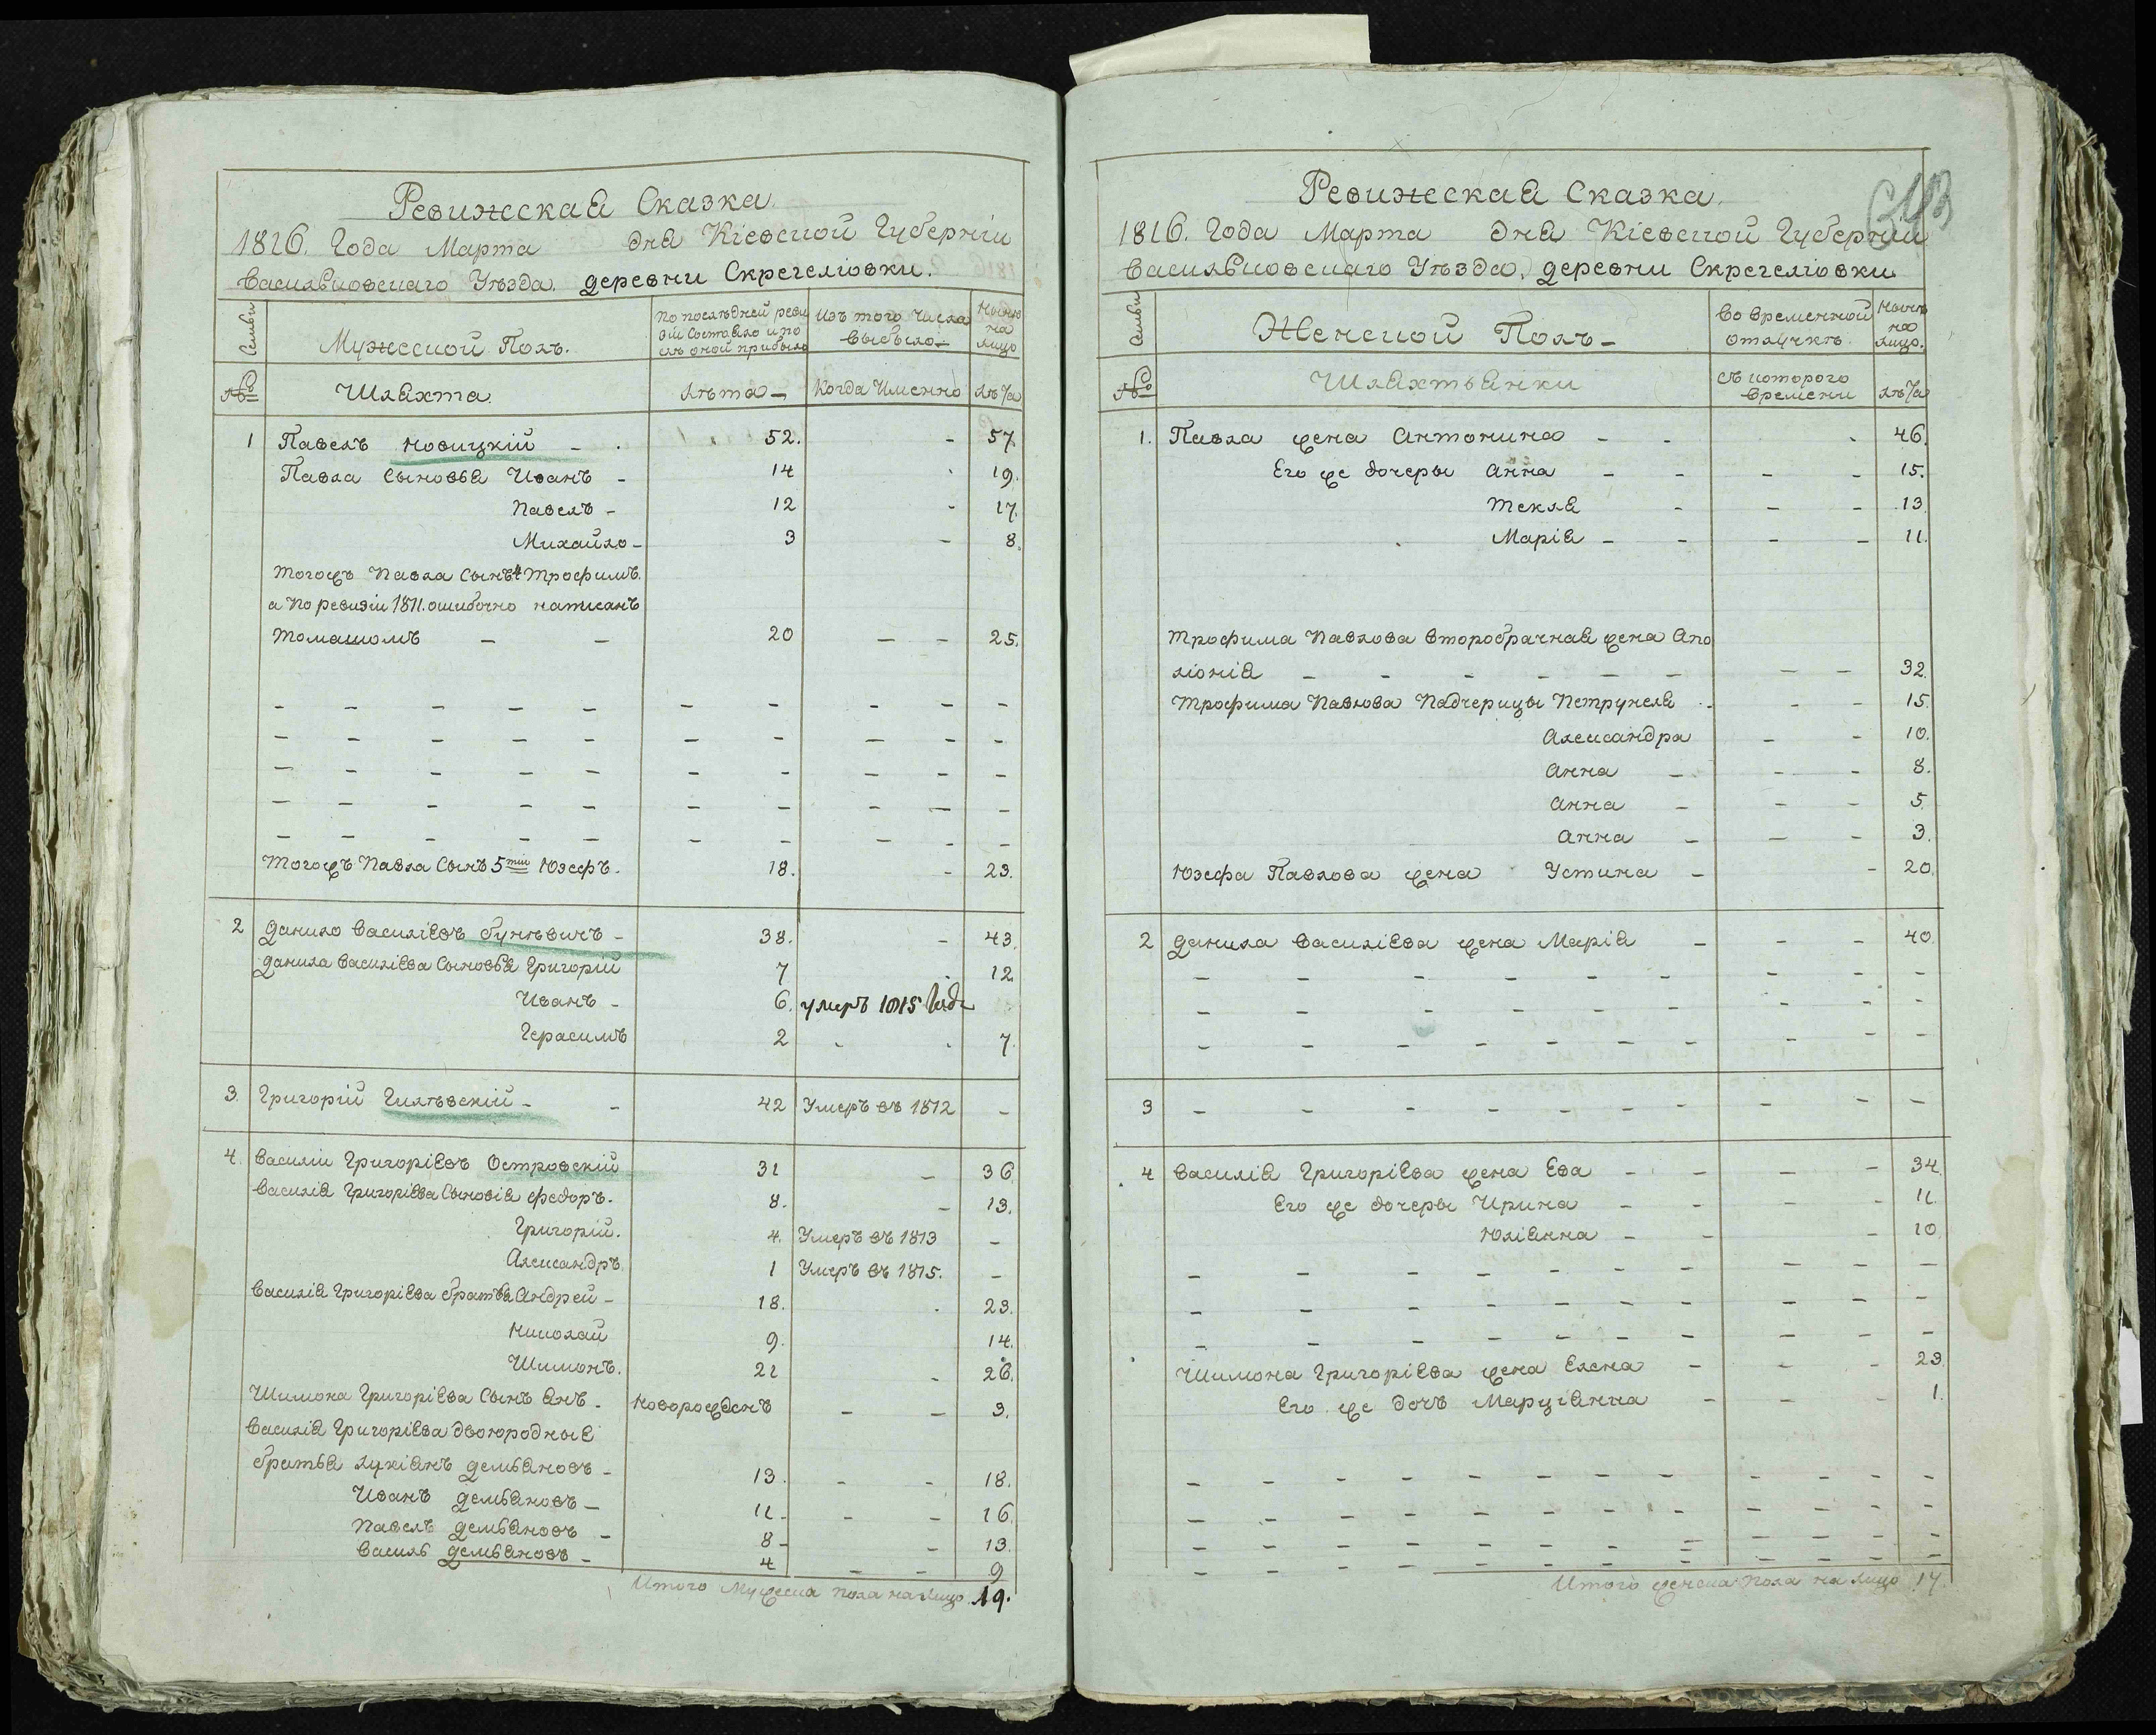 Ревижская Сказка.
1816. Года Марта дня Кіевской Губерніи
Васильковскаго Уѣзда. деревни Скрегеліовки.
Семьи
Мужеской Полъ.
По послѣдней реви
зіи Состояло и по
слѣ оной прибыло
Изъ того Числа
выбыло
Нынѣ
на
лицо
№
Шляхта.
Лѣта
Когда Именно
Лѣта
1 Павелъ Новицкій 52. 57.
Павла Сыновья Иванъ 14 19.
Павелъ 12 17.
Михайло 3 8.
Тогожъ Павла Сынъ 4 Трофимъ.
а По ревизіи 1811. ошибочно написанъ
Томашомъ 20 25.
Тогожъ Павла Сынъ 5тый Юзефъ. 18. 23.
2 Данило Василіевъ Бунѣвичъ 38. 43.
Данила Василіева Сыновья Григорій 7 12
Иванъ 6. умеръ 1815 Года
Герасимъ 2 7.
3. Григорій Гилѣвскій 42 Умеръ въ 1812
4. Василій Григоріевъ Островскій 31 36.
Василія Григоріева Сыновія Федоръ. 8. 13.
Григорій. 4. Умеръ въ 1813
Александръ. 1 Умеръ въ 1815.
Василія Григоріева братья Андрей 18. 23.
Николай 9. 14.
Шимонъ. 21 26.
Шимона Григоріева Сынъ Янъ. новорожденъ 3.
Василія Григоріева двоюродныя
братья Лукіанъ Демьяновъ 13. 18.
Иванъ Демьяновъ 11 16.
Павелъ Демьяновъ 8 13.
Василь Демьяновъ 4 9
Итого Мужеска пола на лицо 19.
Ревижская Сказка.
1816. Года Марта дня Кіевской Губерніи
Васильковскаго Уѣзда, деревни Скрегеліовки
Семьи
Женской Полъ
Во временной
отлучкѣ.
Нынѣ
на
лицо.
№
Шляхтьянки
Съ котораго
времени
Лѣта
1. Павла жена Антонина 46.
Его же дочеры Анна 15.
Текля 13
Марія 11.
Трофима Павлова второбрачная жена Апо
лонія 32.
Трофима Павлова Падчерицы Петрунеля 15.
Александра 10.
Анна 8.
Анна 5.
Анна 3.
Юзефа Павлова жена Устина 20.
2 Данила Василіева жена Марія 40.
3
4 Василія Григоріева жена Ева 34.
Его же дочеры Ирина 11.
Юліянна 10
Шимона Григоріева жена Елена 23.
Его же дочъ Марціянна 1.
Итого женска пола на лицо 14.